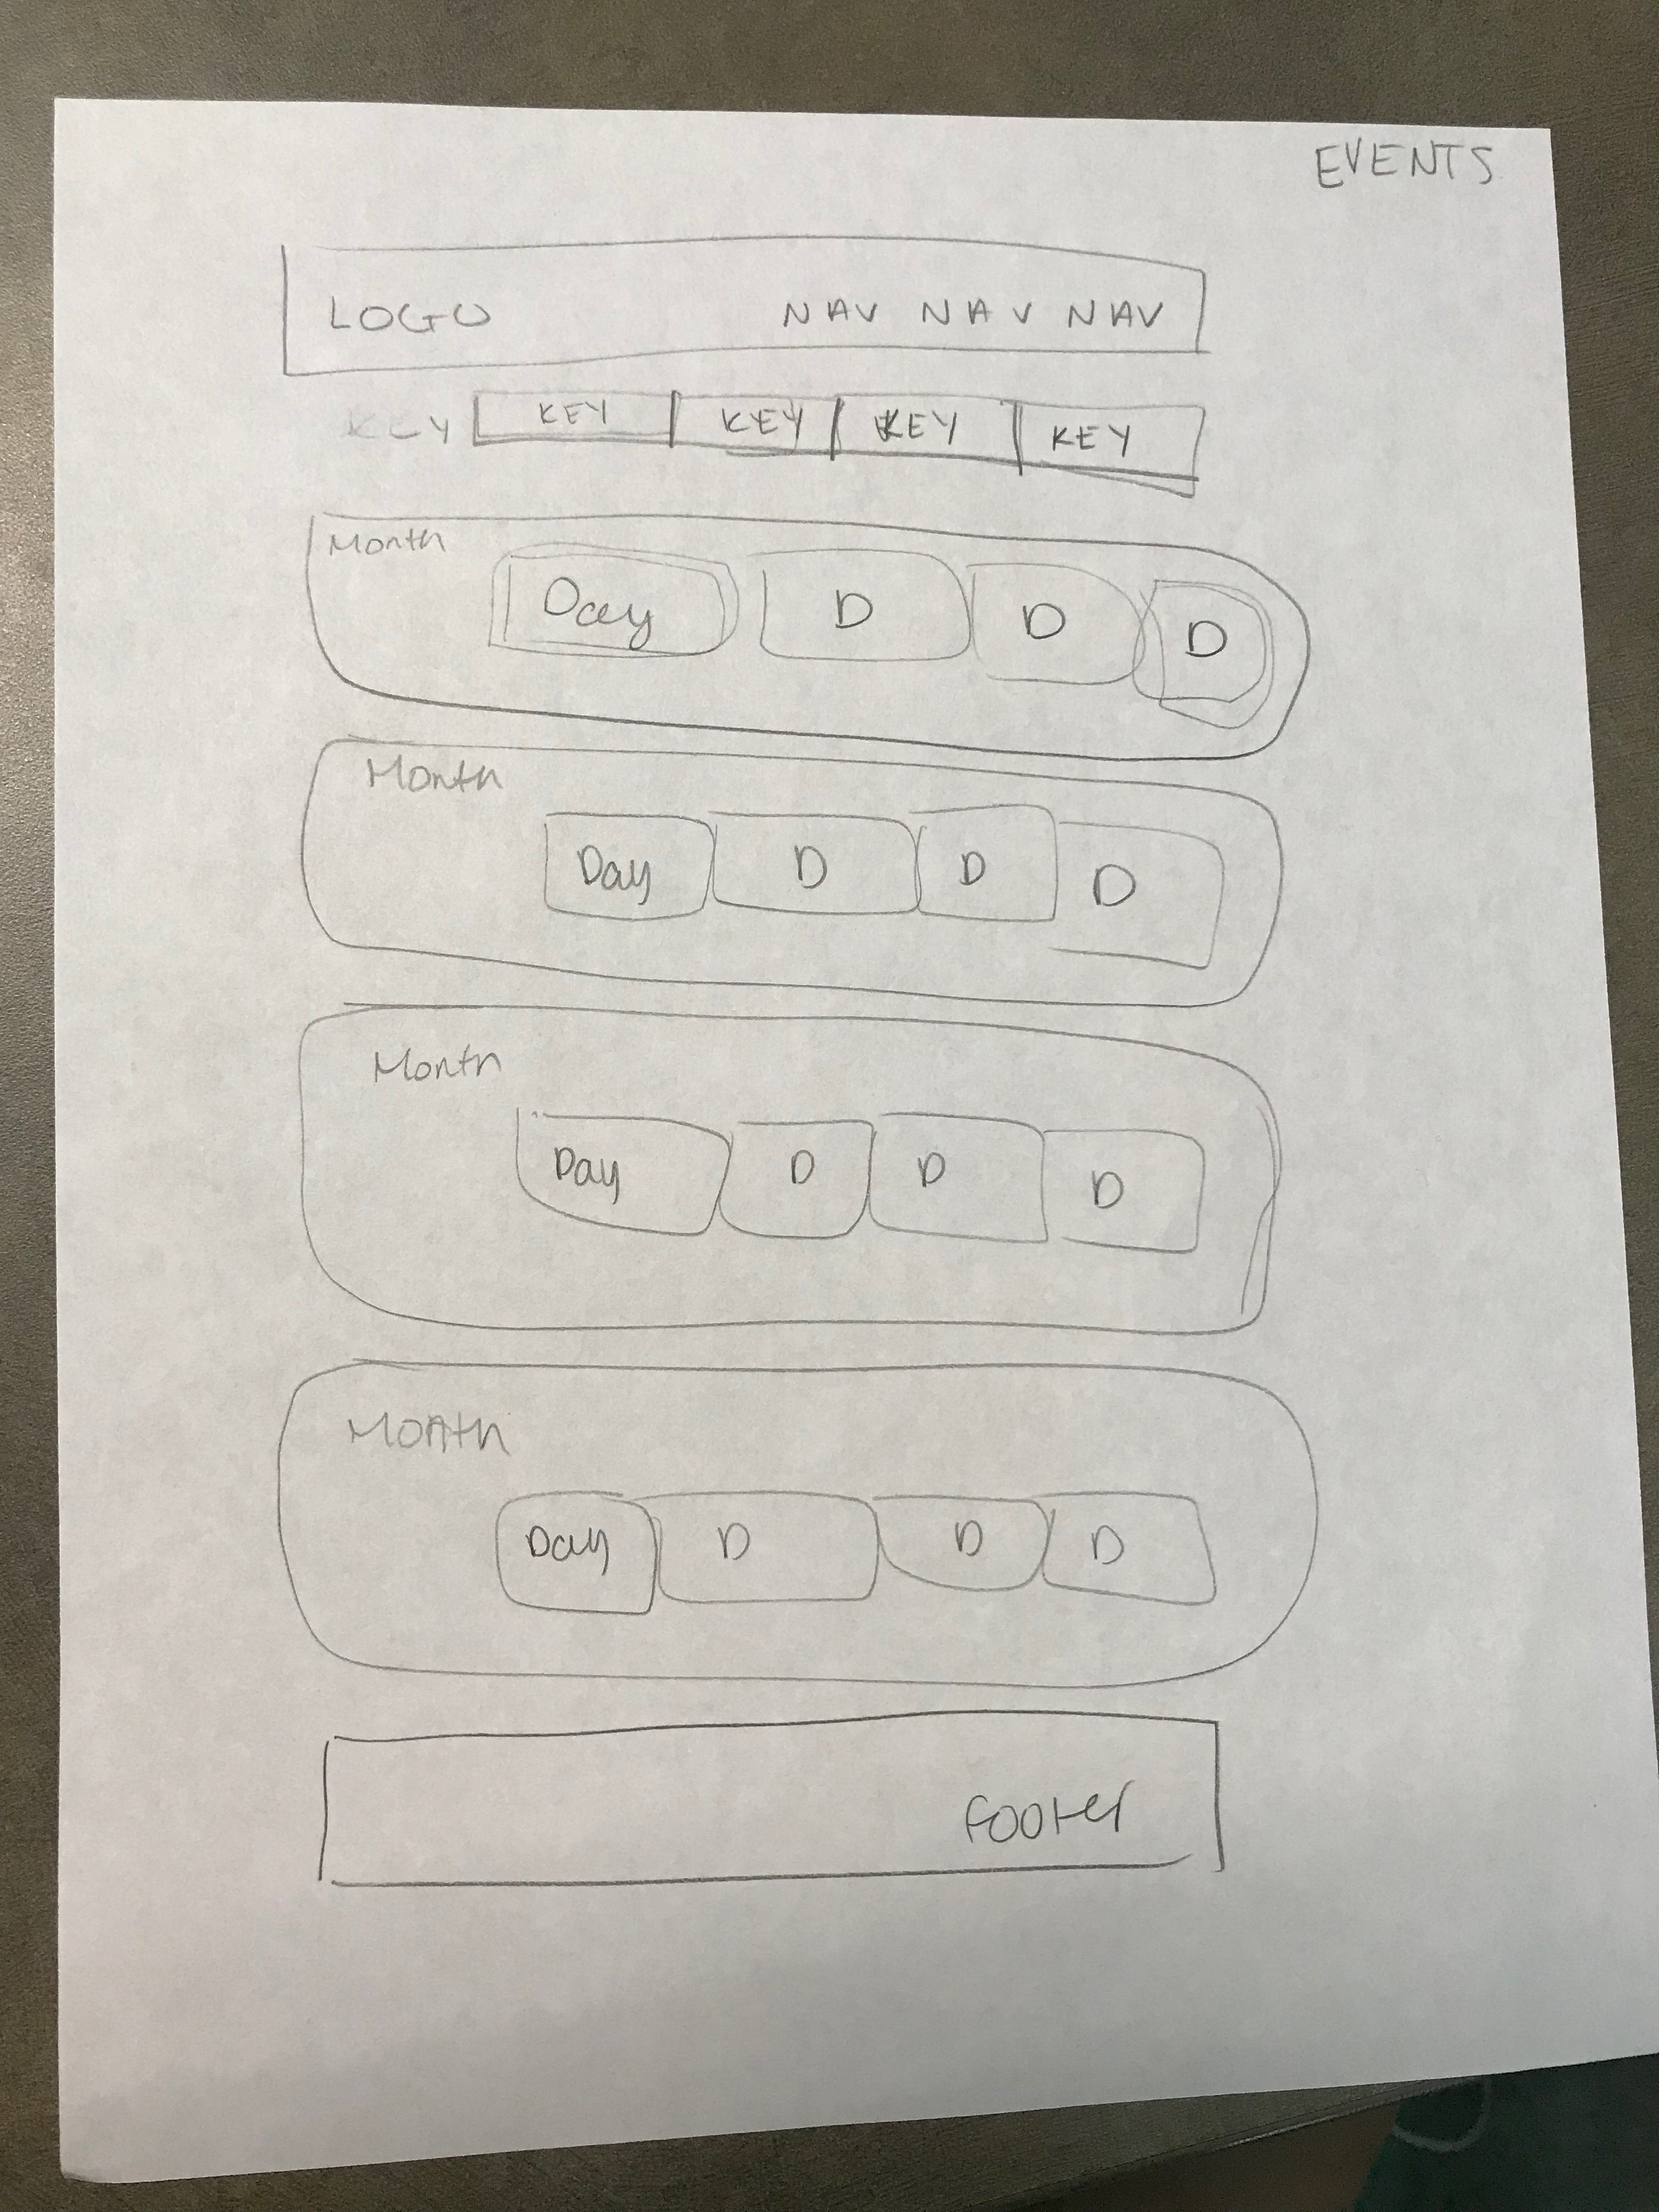 EVENTS
LOGO NAV NAV NAV
KEY KEY KEY KEY KEY
Month
Day D D D
Month
Day D D D
Month
Day D D D
Month
Day D D D
Footer